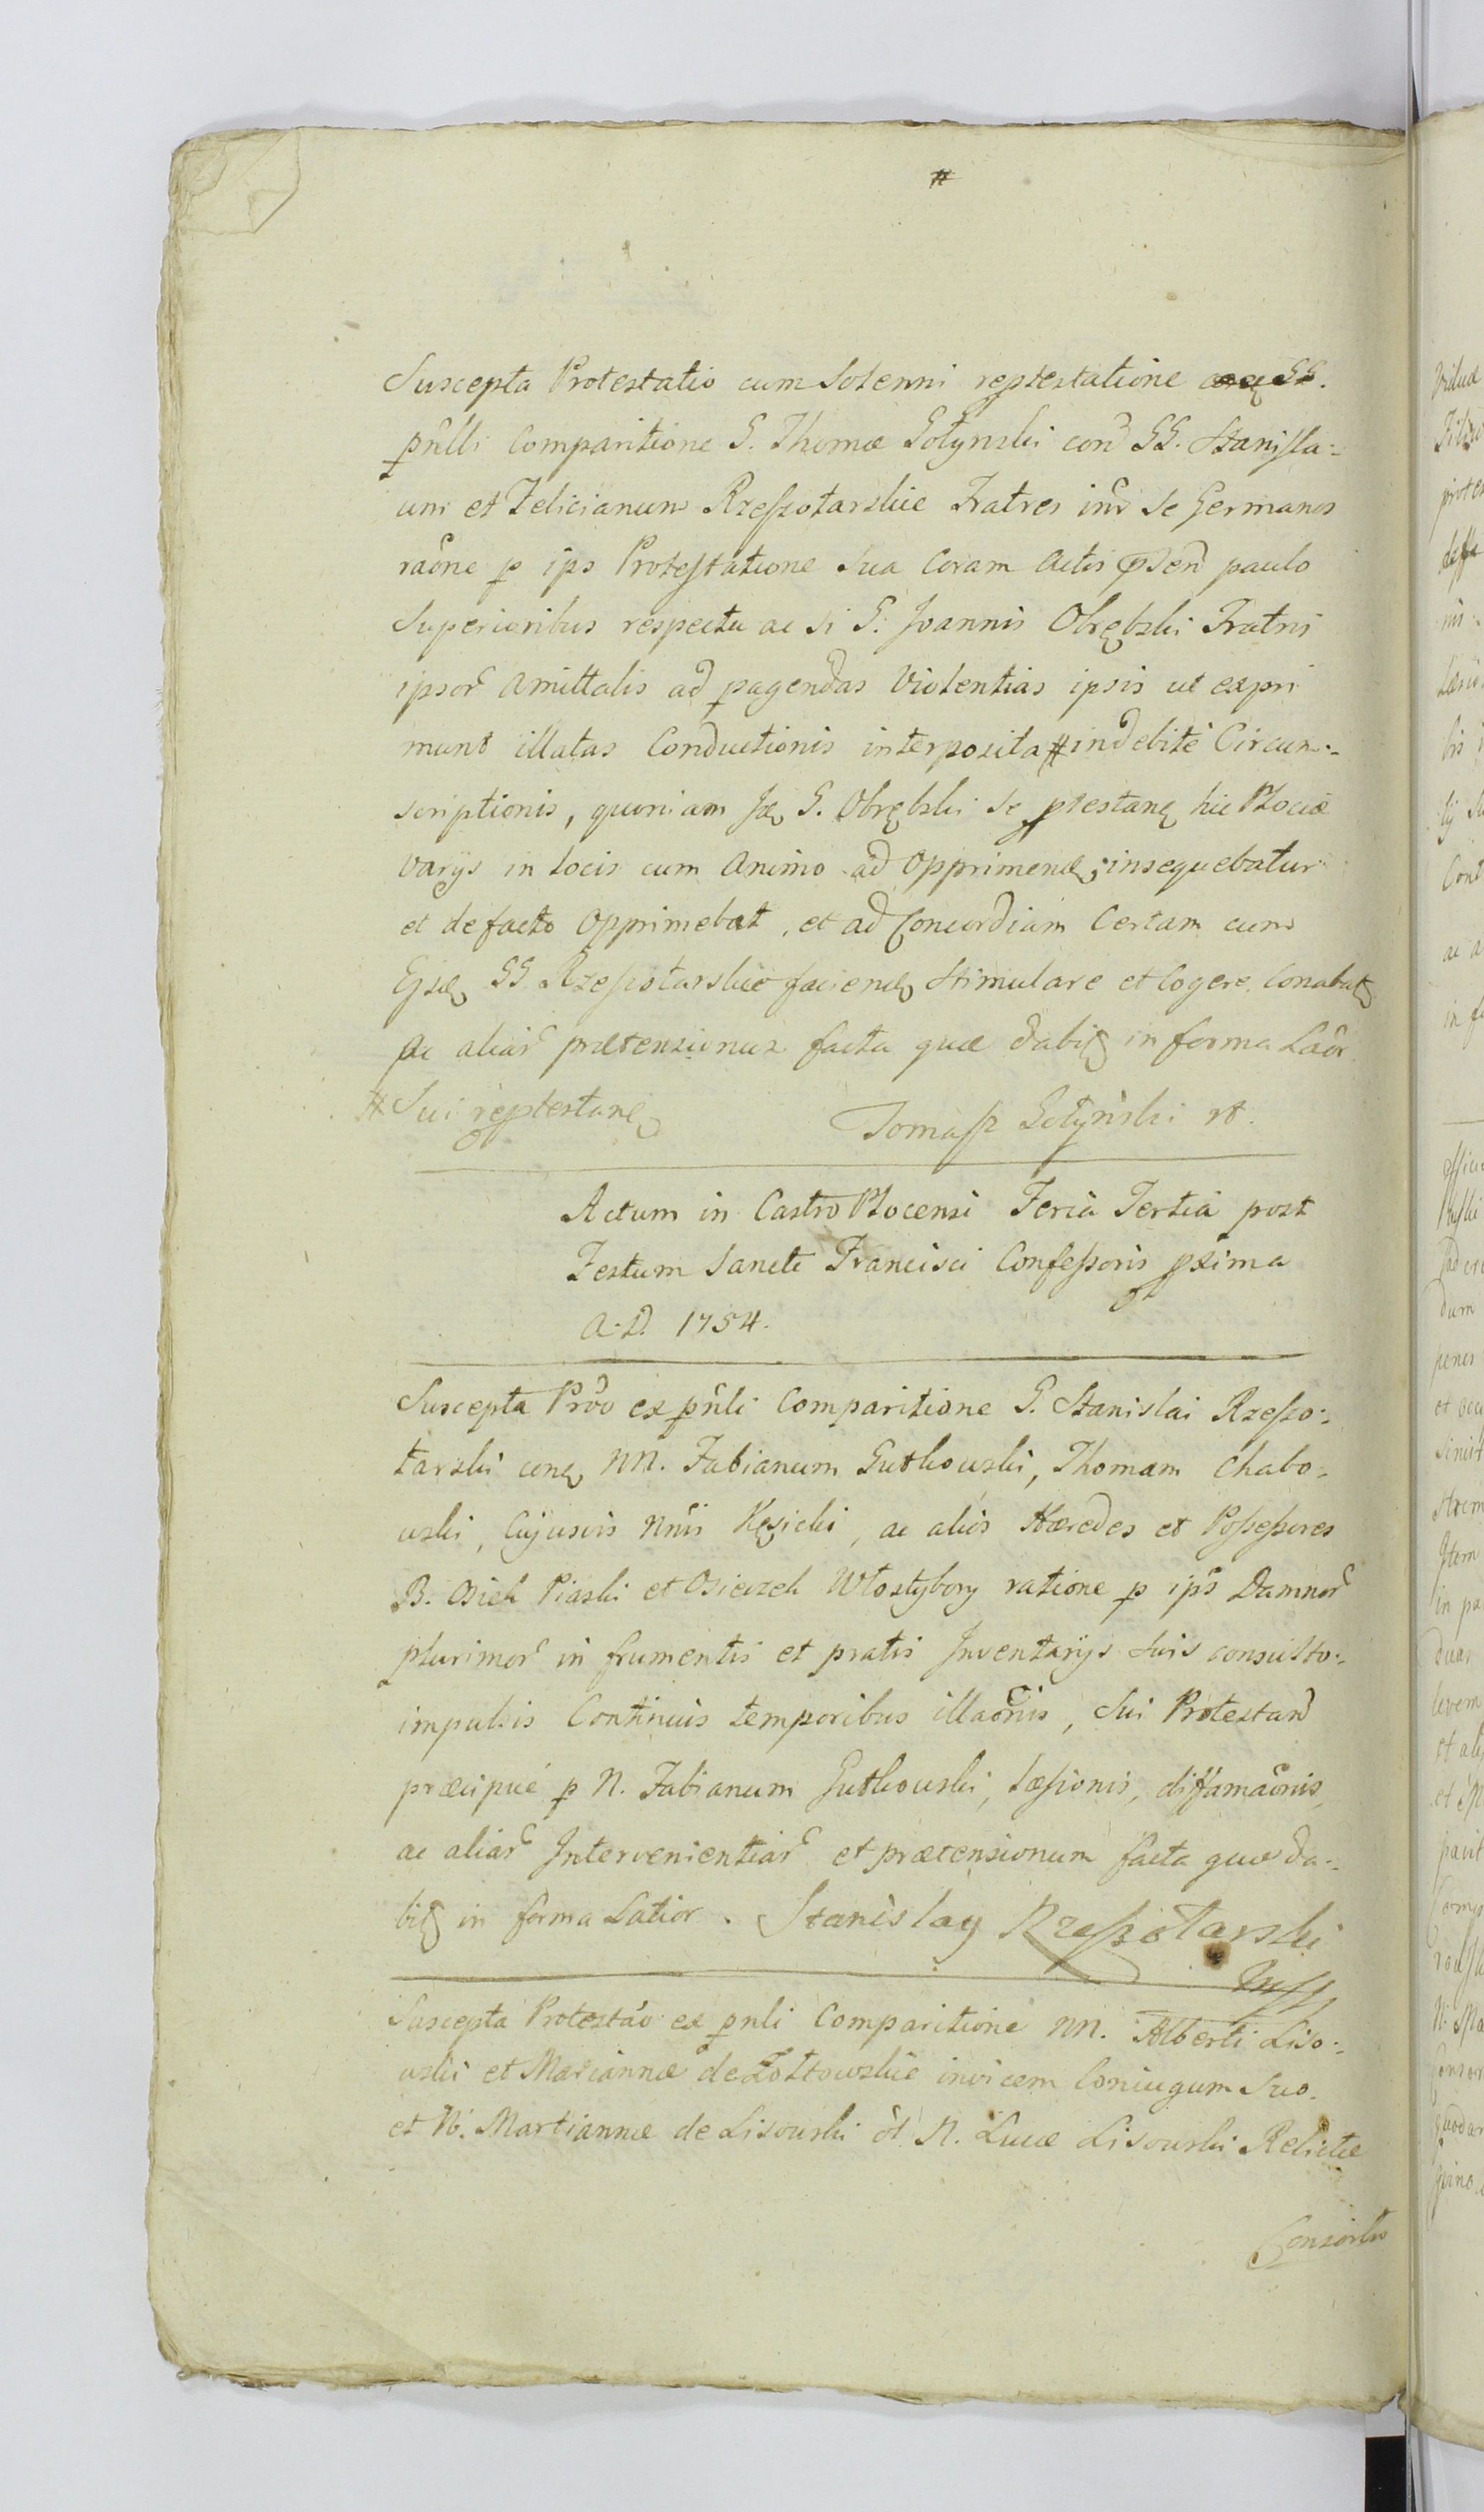 #
Suscepta Protestatio cum Solenni reptestatione
pnlli Comparitione G. Thomæ Gołynski con̄ GG. Stanisla:
um et Felicianum Rzeszotarskie Fratres inr̄ se Germanos
raōne p ips Protestatione Sua Coram Actis psen̄ paulo
Superioribus respectu ac si G. Joannis Obrębski Fratris
ipsor̄ Amittalis ad pagendas Violentias ipsis ut expri
munt illatas Conductionis interposita # indebitè Circum:
scriptionis, quoniam G. Obrębski se ptestanę hic Plociæ
varijs in locis cum Animo ad Opprimendę insequebatur
et de facto Opprimebat, et ad Concordiam Certam cum
Ejsdę GG Rzeszotarskie faciendę Stimulare et Cogere Conabatę
Ac aliar̄ prætensionum facta quæ dabitę in forma Laōr.
# Sui reptestanę Tomasz Gołyński
Actum in Castro Plocensi Feria Tertia post
Festum Sancti Francisci Confessoris pxima
A. D. 1754.
Suscepta Prōo ex pnli Comparitione G. Stanislai Rzeszo:
tarski conę NN. Fabianum Gutkowski, Thomam Chabo:
wski, Cujusvis Nnīi Kęsicki, ac aliòs Hæredes et Possessores
B. Osiek Piaski et Osieczek Włostybory ratione p ips Damnor̄
plurimor̄ in frumentis et pratis Inventarijs Suis consulto:
impulsis Continuis temporibus illaōnis, Sui Protestan̄
præcipuè p N. Fabianum Gutkowski, læsionis, diffamaōnis,
ac aliar̄ Intervenientiar̄ et prætensionum facta quæ da:
bitę in forma Latior. Stanislaw Rzeszotarski
Suscepta Protestāo ex pnli Comparitione NN. Alberti Liso:
wski et Mariannæ de Zołtowskie invicem Coniugum Suo.
et N. Martiannæ de Lisowski ol N. Lucæ Lisowski Relictæ
Consortis